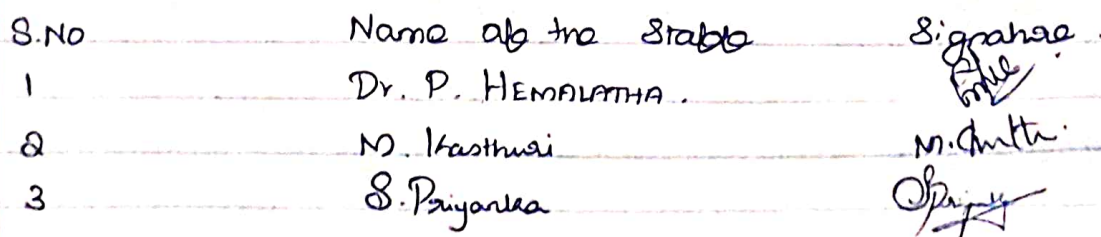 S.No Name of the Staff Signature.
1 Dr. P. HEMALATHA.
2 M. Kasthuri
3 S. Priyanka